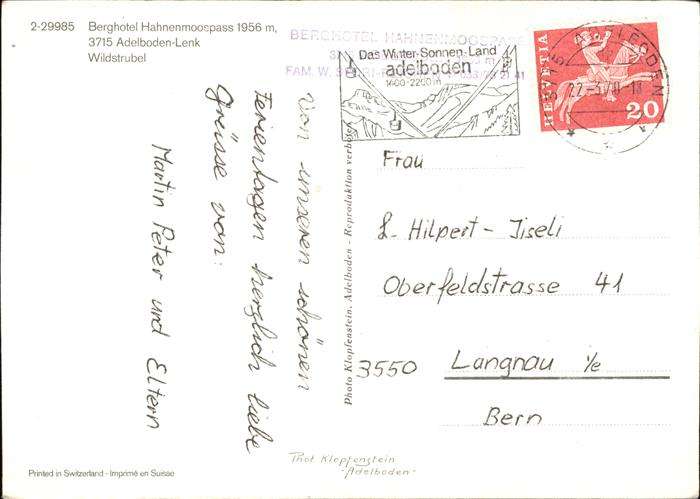 2-29985 Berghotel Hahnenmoospass 1956 m,
3715 Adelboden-Lenk
Wildstrubel
BERGHOTEL HAHNENMOOSPASS
FAM. W.
Das Winter-Sonnen-Land
adelboden
1400-2200 m
ADELBODEN
22.-3.70-18
HELVETIA
20
von unseren schönen
Ferientagen herzlich liebe
Grüsse von:
Martin Peter und Eltern
Photo Klopfenstein, Adelboden - Reproduktion verboten
Frau
L. Hilpert - Jseli
Oberfeldstrasse 41
3550 Langnau i/e
Bern
Phot Klopfenstein
- Adelboden -
Printed in Switzerland - Imprimé en Suisse